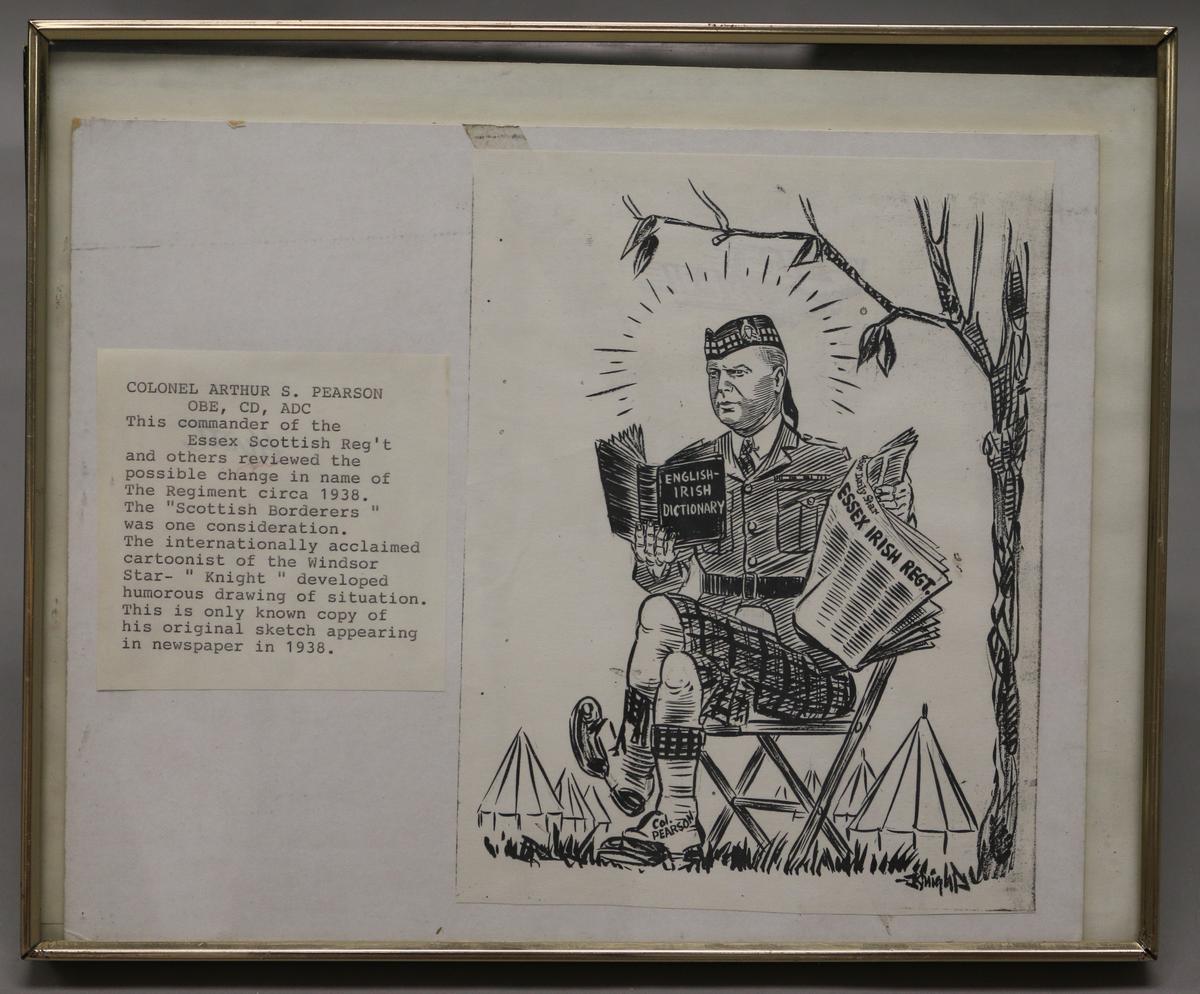 COLONEL ARTHUR S. PEARSON
OBE, CD, ADC
This commander of the
Essex Scottish Reg't
and others reviewed the
possible change in name of
The Regiment circa 1938.
The "Scottish Borderers "
was one consideration.
The internationally acclaimed
cartoonist of the Windsor
Star- " Knight " developed
humorous drawing of situation.
This is only known copy of
his original sketch appearing
in newspaper in 1938.
ENGLISH-
IRISH
DICTIONARY
Daily Star
ESSEX IRISH REGT.
Col.
PEARSON
Knight